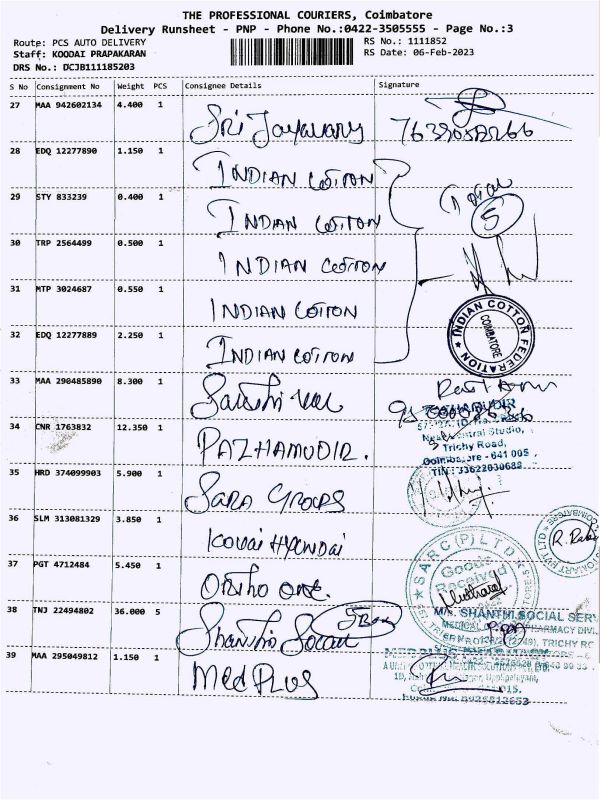 THE PROFESSIONAL COURIERS, Coimbatore
Delivery Runsheet - PNP - Phone No.:0422-3505555 - Page No.:3
Route: PCS AUTO DELIVERY
RS No.: 1111852
Staff: KOODAI PRAPAKARAN
RS Date: 06-Feb-2023
DRS No.: DCJB111185203
S No Consignment No Weight PCS Consignee Details Signature
27 MAA 942602134 4.400 1 Sri
28 EDQ 12277890 1.150 1 INDIAN COTTON
29 STY 833239 0.400 1 INDIAN COTTON
Total
5
30 TRP 2564499 0.500 1 INDIAN COTTON
31 MTP 3024687 0.550 1 INDIAN COTTON
INDIAN COTTON FEDERATION
COIMBATORE
32 EDQ 12277889 2.250 1 INDIAN COTTON
33 MAA 290485890 8.300 1
34 CNR 1763832 12.350 1 PAZHAMUDIR.
Trichy Road,
Coimbatore - 641 005
TIN: 33622030688
35 HRD 374099903 5.900 1 SARA GROUPS
36 SLM 313081329 3.850 1 KOVAI HYUNDAI
37 PGT 4712484 5.450 1 Ortho one.
SARC (P) LTD
Goods
Received
38 TNJ 22494802 36.000 5 Shanthi Social
5 Box
M/s. SHANTHI SOCIAL SERV
MEDICAL PHARMACY DIVI.
TRICHY RO
39 MAA 295049812 1.150 1 Med PLUS